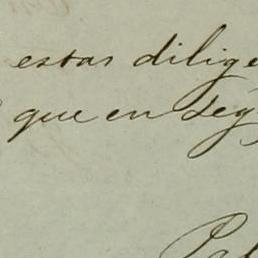 estas dilige
que en seg